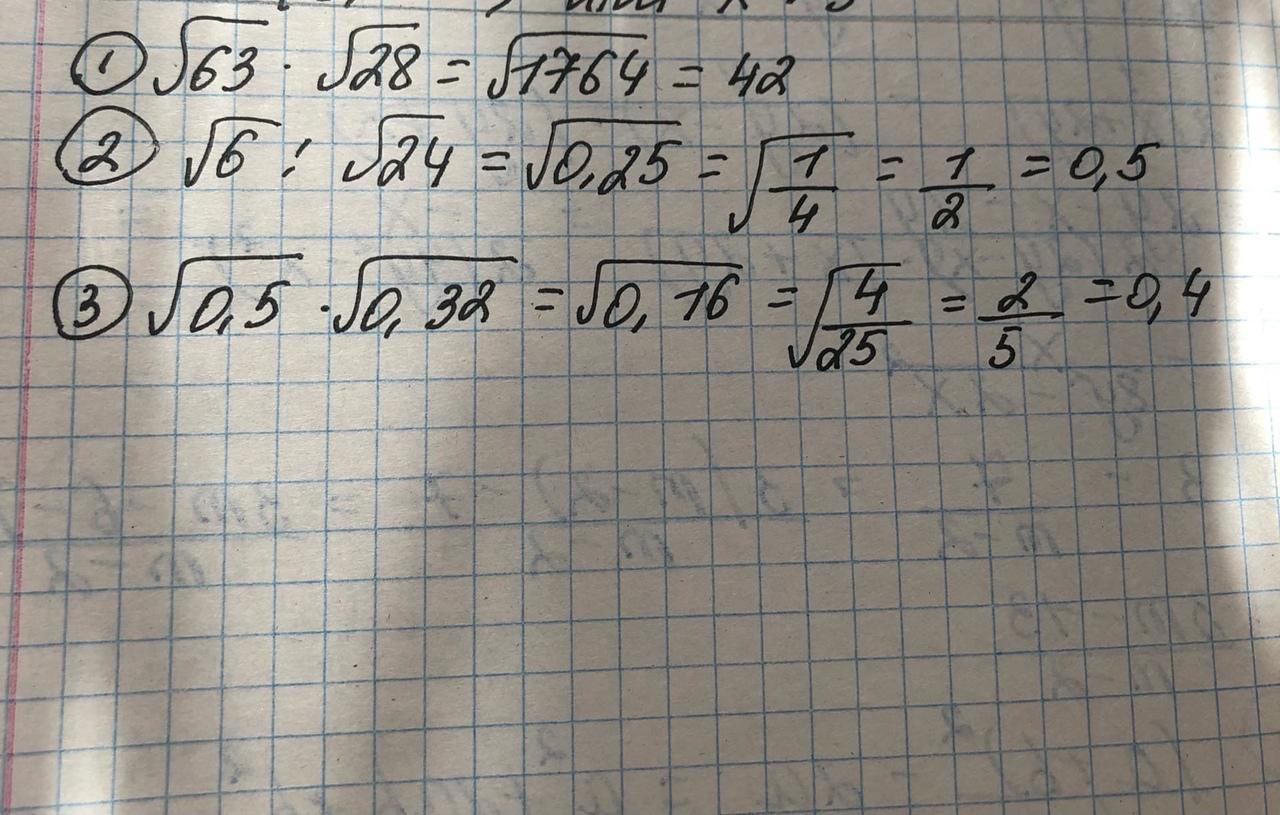 ① √63 · √28 = √1764 = 42
② √6 : √24 = √0,25 = √1/4 = 1/2 = 0,5
③ √0,5 · √0,32 = √0,16 = √4/25 = 2/5 = 0,4